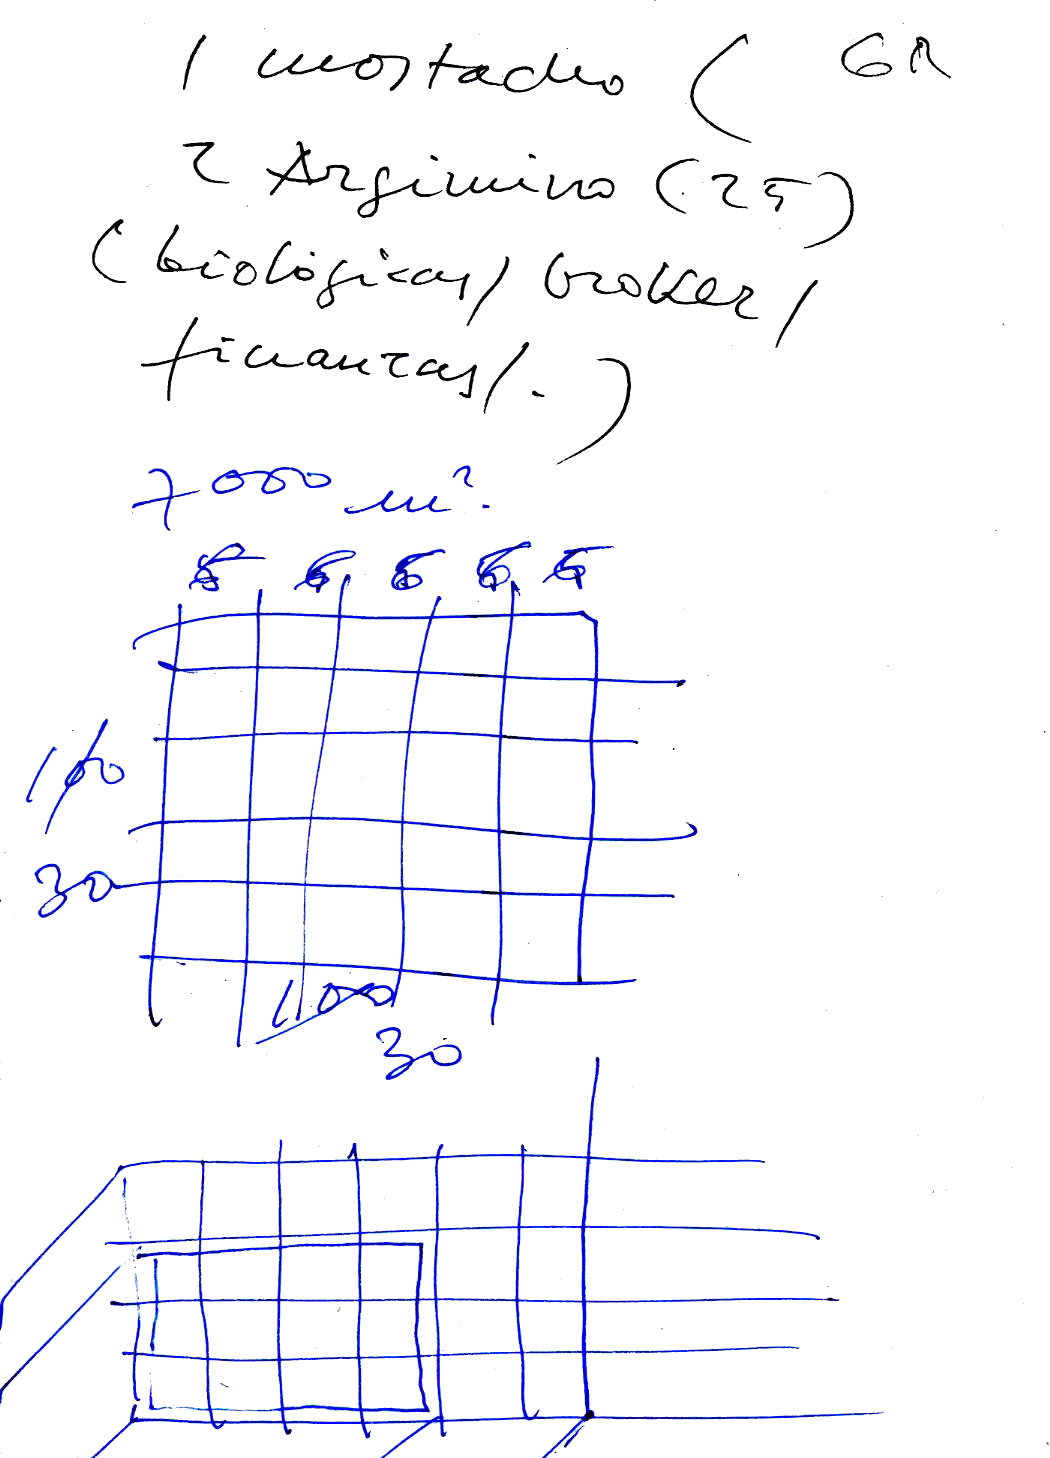 1 mostacho ( GR
2 Argimiro (25)
(biológicas/ broker/
finanzas/.)
7000 m².
6 6 6 6
30
100
30